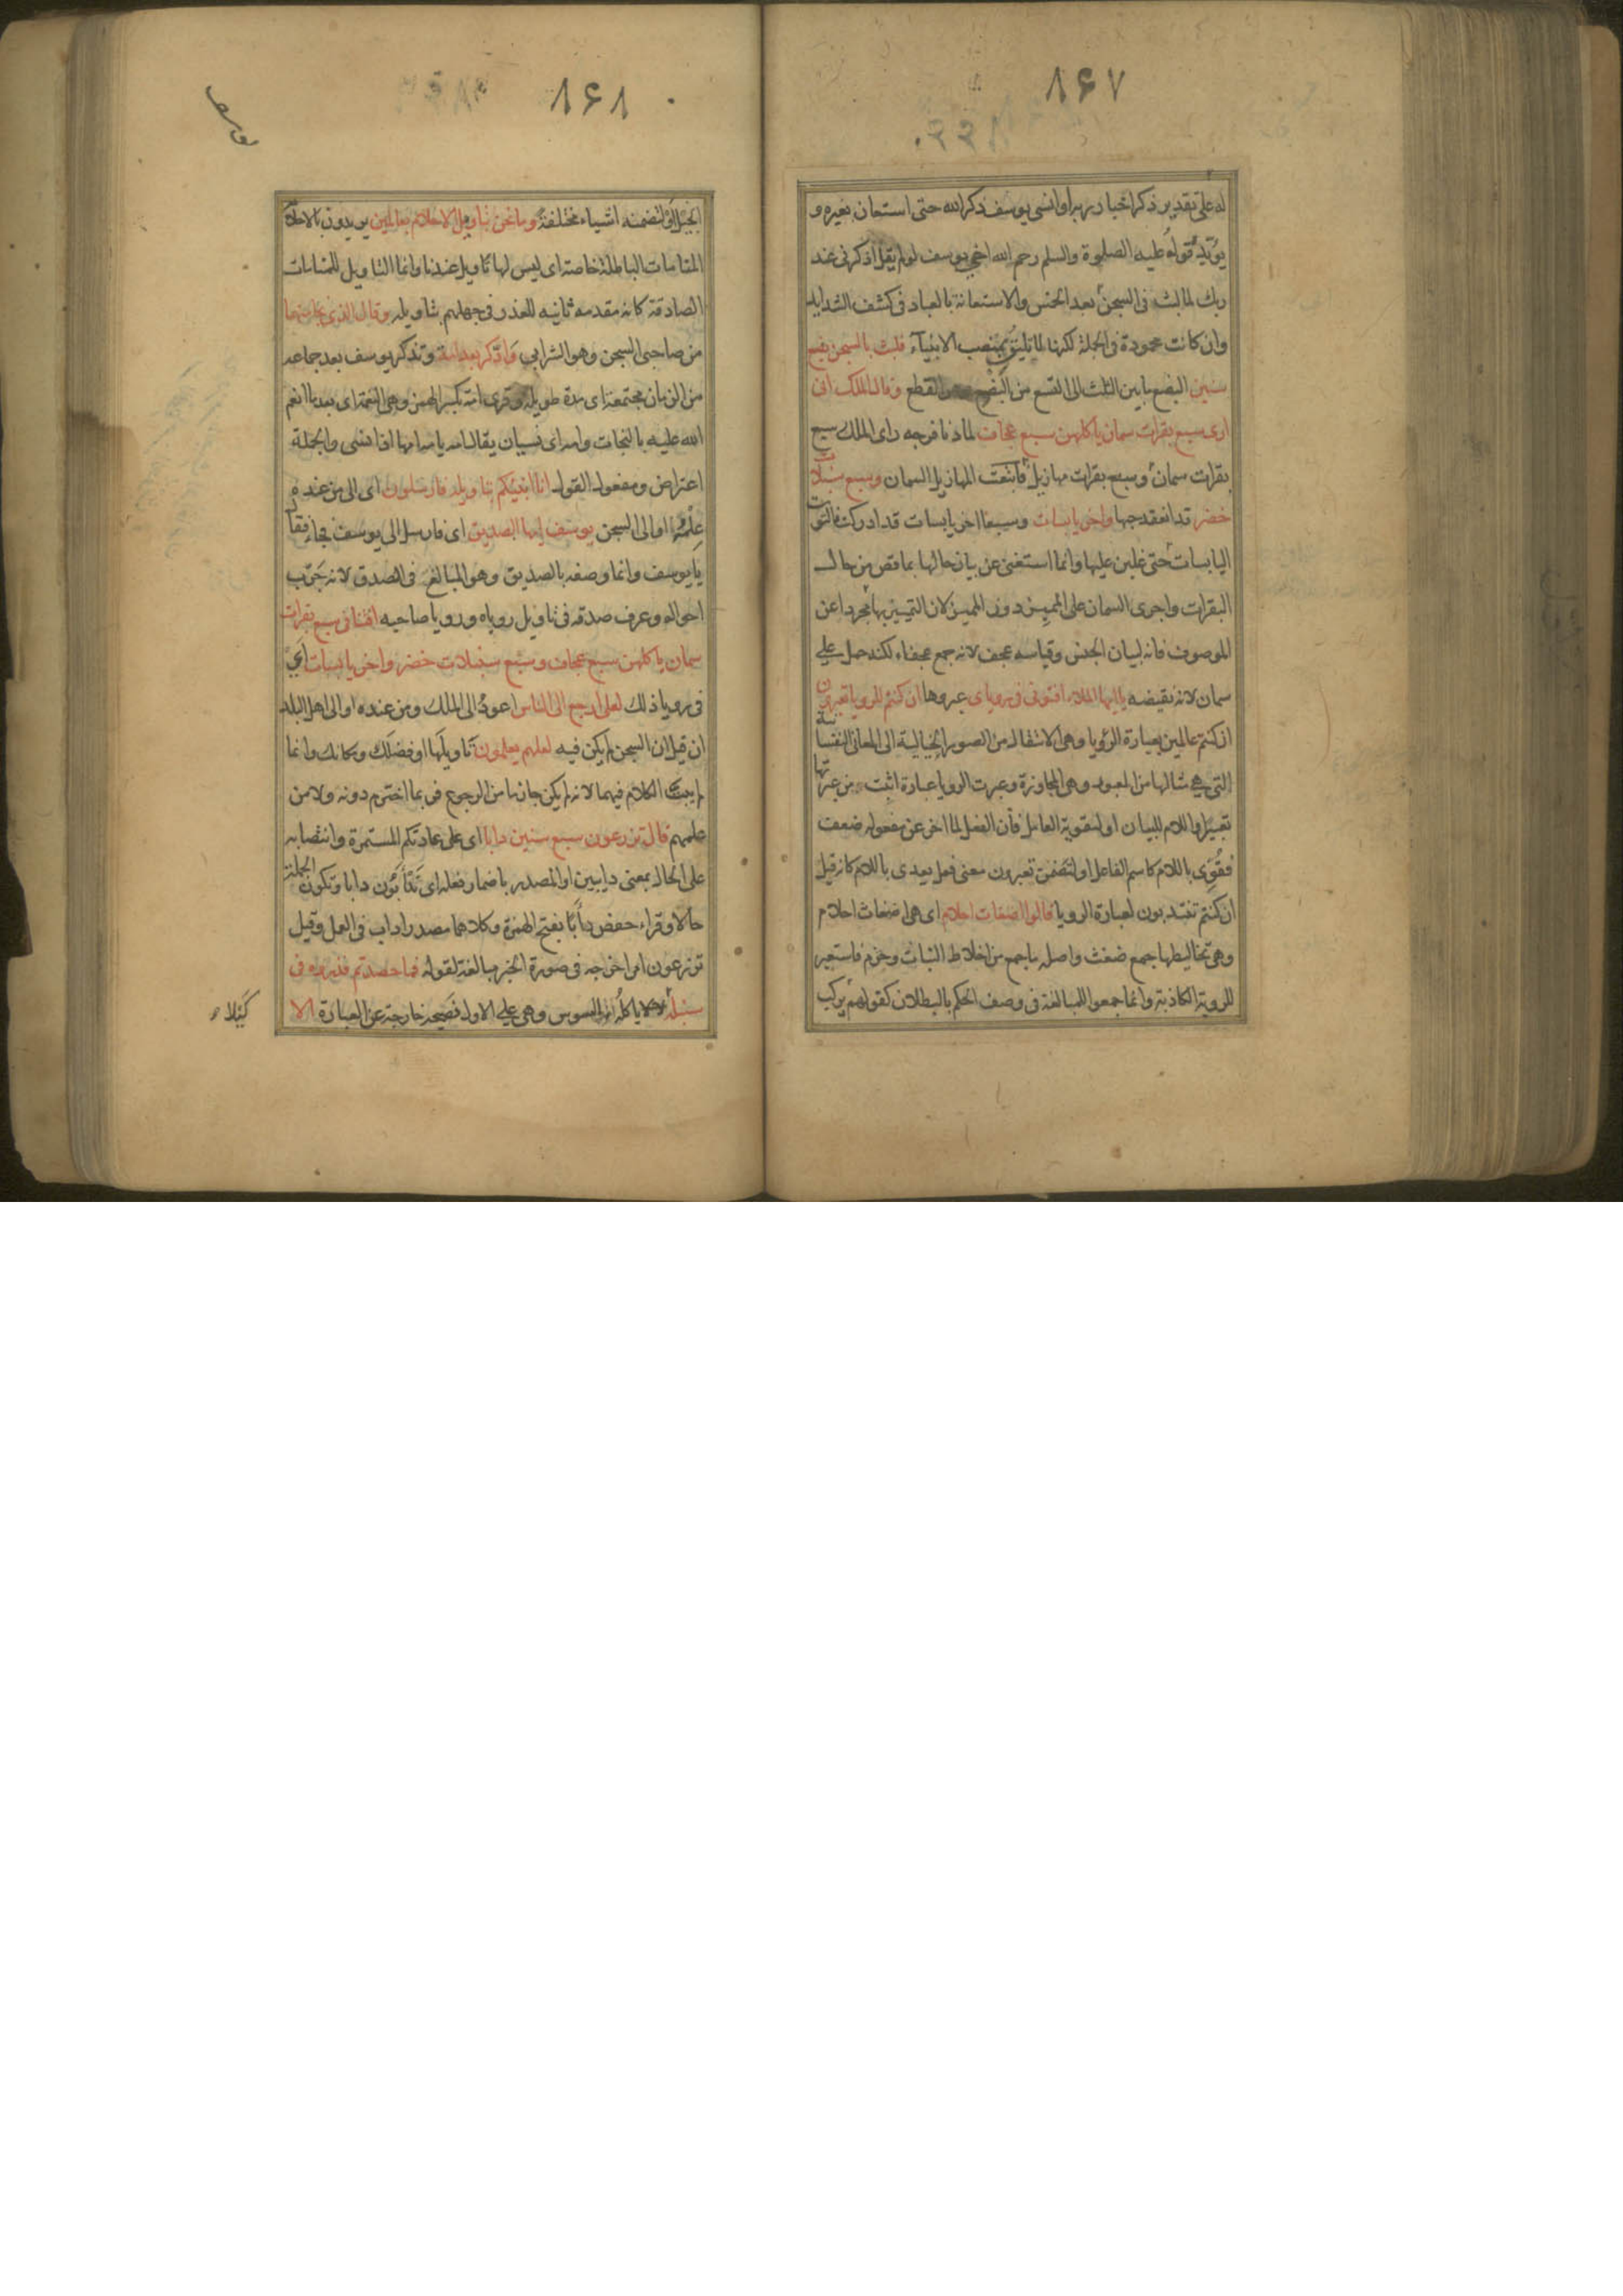 ۸۶۷
له على تقدير ذكر اخبار ربه او انسى يوسف ذكر الله حتى استعان بغيره و
يؤيد قوله عليه الصلوة والسلم رحم الله اخي يوسف لو لم يقل اذكرنى عند
ربك لما لبث فى السجن سبعا بعد الخمس والاستعانة بالعباد فى كشف الشدايد
وان كانت محمودة فى الجملة لكنها لا تليق بمنصب الانبياء فلبث بالسجن بضع
سنين البضع ما بين الثلث الى التسع من البضع وهو القطع وقال الملك انى
ارى سبع بقرات سمان ياكلهن سبع عجاف لما دنا فرجه راى الملك سبع
بقرات سمان وسبع بقرات مهازيل فابتلعت المهازيل السمان وسبع سنبلات
خضر قد انعقد حبها واخر يابسات وسبعا اخر يابسات قد ادركت فالتوت
اليابسات حتى غلبن عليها وانما استغنى عن بيان حالها بما قص من حال
البقرات واجرى السمان على المميز دون المميز لان التمييز بها مجردا عن
الموصوف فانه لبيان الجنس وقياسه عجف لانه جمع عجفاء لكنه حمل على
سمان لانه نقيضه يا ايها الملاء افتونى فى روياى عبروها ان كنتم للرويا تعبرون
ان كنتم عالمين بعبارة الرؤيا وهى الانتقال من الصور الخيالية الى المعانى النفسانية
التى هى مثالها من العبور وهى المجاوزة وعبرت الرويا عبارة اثبت من عبرتها
تعبيرا واللام للبيان او لتقوية العامل فان الفعل لما اخر عن مفعوله ضعف
فقوى باللام كاسم الفاعل او لتضمن تعبرون معنى فعل يعدى باللام كانه قيل
ان كنتم تنتدبون لعبارة الرويا قالوا اضغاث احلام اى هى اضغاث احلام
وهى تخاليطها جمع ضغث واصله ما جمع من اخلاط النبات وحزم فاستعير
للروية الكاذبة وانما جمعوا للمبالغة فى وصف الحكم بالبطلان كقولهم يركب
۸۶۸
يوسف
الخيل او لتضمنه اشياء مختلفة وما نحن بتاويل الاحلام بعالمين يريدون بالاحلام
المنامات الباطلة خاصة اى ليس لها تاويل عندنا وانما التاويل للمنامات
الصادقة كانه مقدمه ثانيه للعذر فى جهلهم بتاويله وقال الذى نجا منهما
من صاحبى السجن وهو الشرابى وادكر بعد امة وتذكر يوسف بعد جماعه
من الزمان مجتمعة اى مدة طويله وقرى امة بكسر الهمز وهى النعمة اى بعد ما انعم
الله عليه بالنجات وامه اى نسيان يقال امه يامه امها اذا نسى والجملة
اعتراض ومفعول القول انا انبئكم بتاويله فارسلون اى الى من عنده
علمه او الى السجن يوسف ايها الصديق اى فارسل الى يوسف فجاء فقال
يا يوسف وانما وصفه بالصديق وهو المبالغ فى الصدق لانه جرب
احواله وعرف صدقه فى تاويل روياه ورويا صاحبه افتنا فى سبع بقرات
سمان ياكلهن سبع عجاف وسبع سنبلات خضر واخر يابسات اى
فى رويا ذلك لعلى ارجع الى الناس اعود الى الملك ومن عنده او الى اهل البلد
ان قيل ان السجن لم يكن فيه لعلهم يعلمون تاويلها او فضلك ومكانك وانما
لم يبت الكلام فيهما لانه لم يكن جازما من الرجوع فربما اخترم دونه ولا من
علمهم قال تزرعون سبع سنين دابا اى على عادتكم المستمرة وانتصابه
على الحال بمعنى دايبين او المصدر باضمار فعله اى تدأبون دابا وتكون الجملة
حالا وقراء حفص دأبا بفتح الهمزة وكلاهما مصدر داب فى العمل وقيل
تزرعون امر اخرجه فى صورة الخبر مبالغة لقوله فما حصدتم فذروه فى
سنبله لئلا ياكله السوس وهى على الاول نصيحة خارجة عن العبارة الا